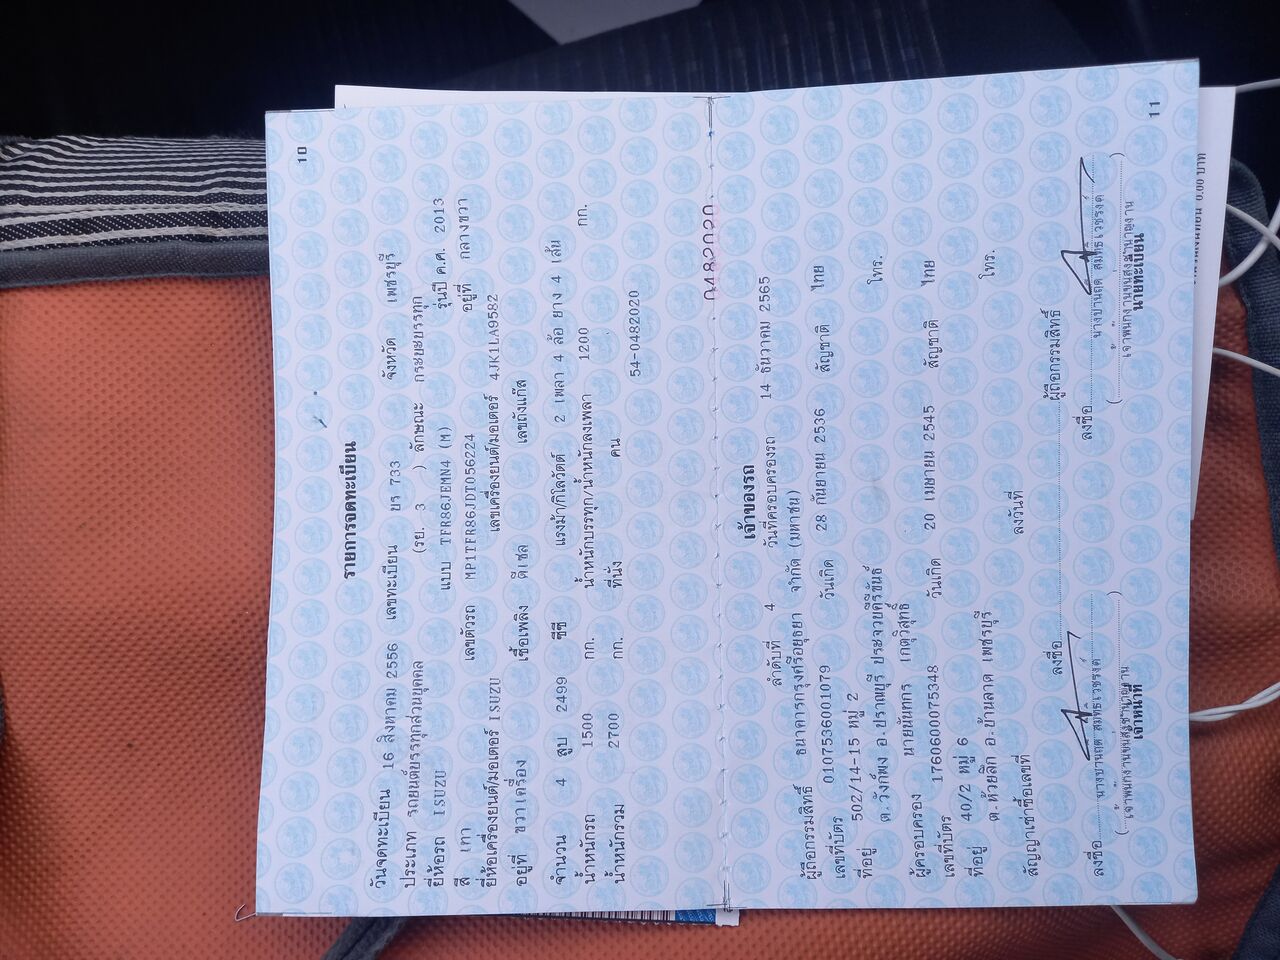 10
รายการจดทะเบียน
วันจดทะเบียน 16 สิงหาคม 2556 เลขทะเบียน ยร 733 จังหวัด เพชรบุรี
ประเภท รถยนต์บรรทุกส่วนบุคคล (รย. 3 ) ลักษณะ กระบะบรรทุก
ยี่ห้อรถ ISUZU แบบ TFR86JEMN4 (M) รุ่นปี ค.ศ. 2013
สี เทา เลขตัวรถ MP1TFR86JDT056224 อยู่ที่ กลางขวา
ยี่ห้อเครื่องยนต์/มอเตอร์ ISUZU เลขเครื่องยนต์/มอเตอร์ 4JK1LA9582
อยู่ที่ ขวาเครื่อง เชื้อเพลิง ดีเซล เลขถังแก๊ส
จำนวน 4 สูบ 2499 ซีซี แรงม้า/กิโลวัตต์ 2 เพลา 4 ล้อ ยาง 4 เส้น
น้ำหนักรถ 1500 กก. น้ำหนักบรรทุก/น้ำหนักลงเพลา 1200 กก.
น้ำหนักรวม 2700 กก. ที่นั่ง คน
54-0482020
0482020
เจ้าของรถ
ลำดับที่ 4 วันที่ครอบครองรถ 14 ธันวาคม 2565
ผู้ถือกรรมสิทธิ์ ธนาคารกรุงศรีอยุธยา จำกัด (มหาชน)
เลขที่บัตร 0107536001079 วันเกิด 28 กันยายน 2536 สัญชาติ ไทย
ที่อยู่ 502/14-15 หมู่ 2
ต.วังก์พง อ.ปราณบุรี ประจวบคีรีขันธ์ โทร.
ผู้ครอบครอง นายนันทกร เกตุวิสุทธิ์
เลขที่บัตร 1760600075348 วันเกิด 20 เมษายน 2545 สัญชาติ ไทย
ที่อยู่ 40/2 หมู่ 6
ต.ห้วยลึก อ.บ้านลาด เพชรบุรี โทร.
สัญญาเช่าซื้อเลขที่ ลงวันที่
ลงชื่อ ผู้ถือกรรมสิทธิ์
ลงชื่อ ลงชื่อ
เจ้าพนักงานขนส่งชำนาญงาน เจ้าพนักงานขนส่งชำนาญงาน
เจ้าหน้าที่ นายทะเบียน
11
0.00 บาท